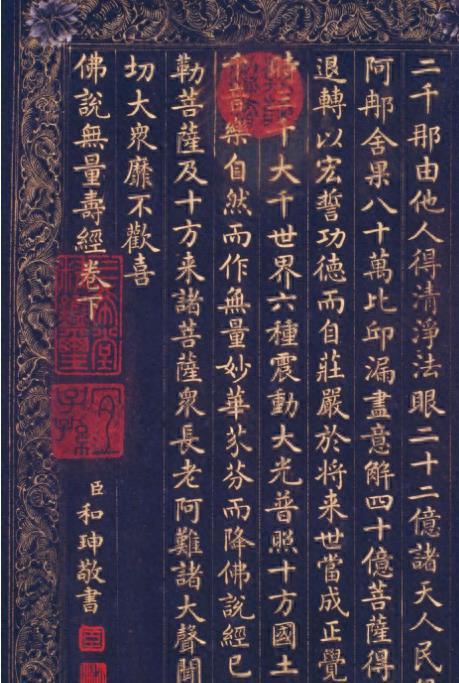 二千那由他人得清淨法眼二十二億諸天人民
阿那舍果八十萬比邱漏盡意解四十億菩薩得
退轉以宏誓功德而自莊嚴於将来世當成正覺
時三千大千世界六種震動大光普照十方國土
千音樂自然而作無量妙華芬芬而降佛說經已
勒菩薩及十方来諸菩薩衆長老阿難諸大聲聞
切大衆靡不歡喜
佛說無量壽經卷下
三希堂精鑒璽
宜子孫
臣和珅敬書
臣